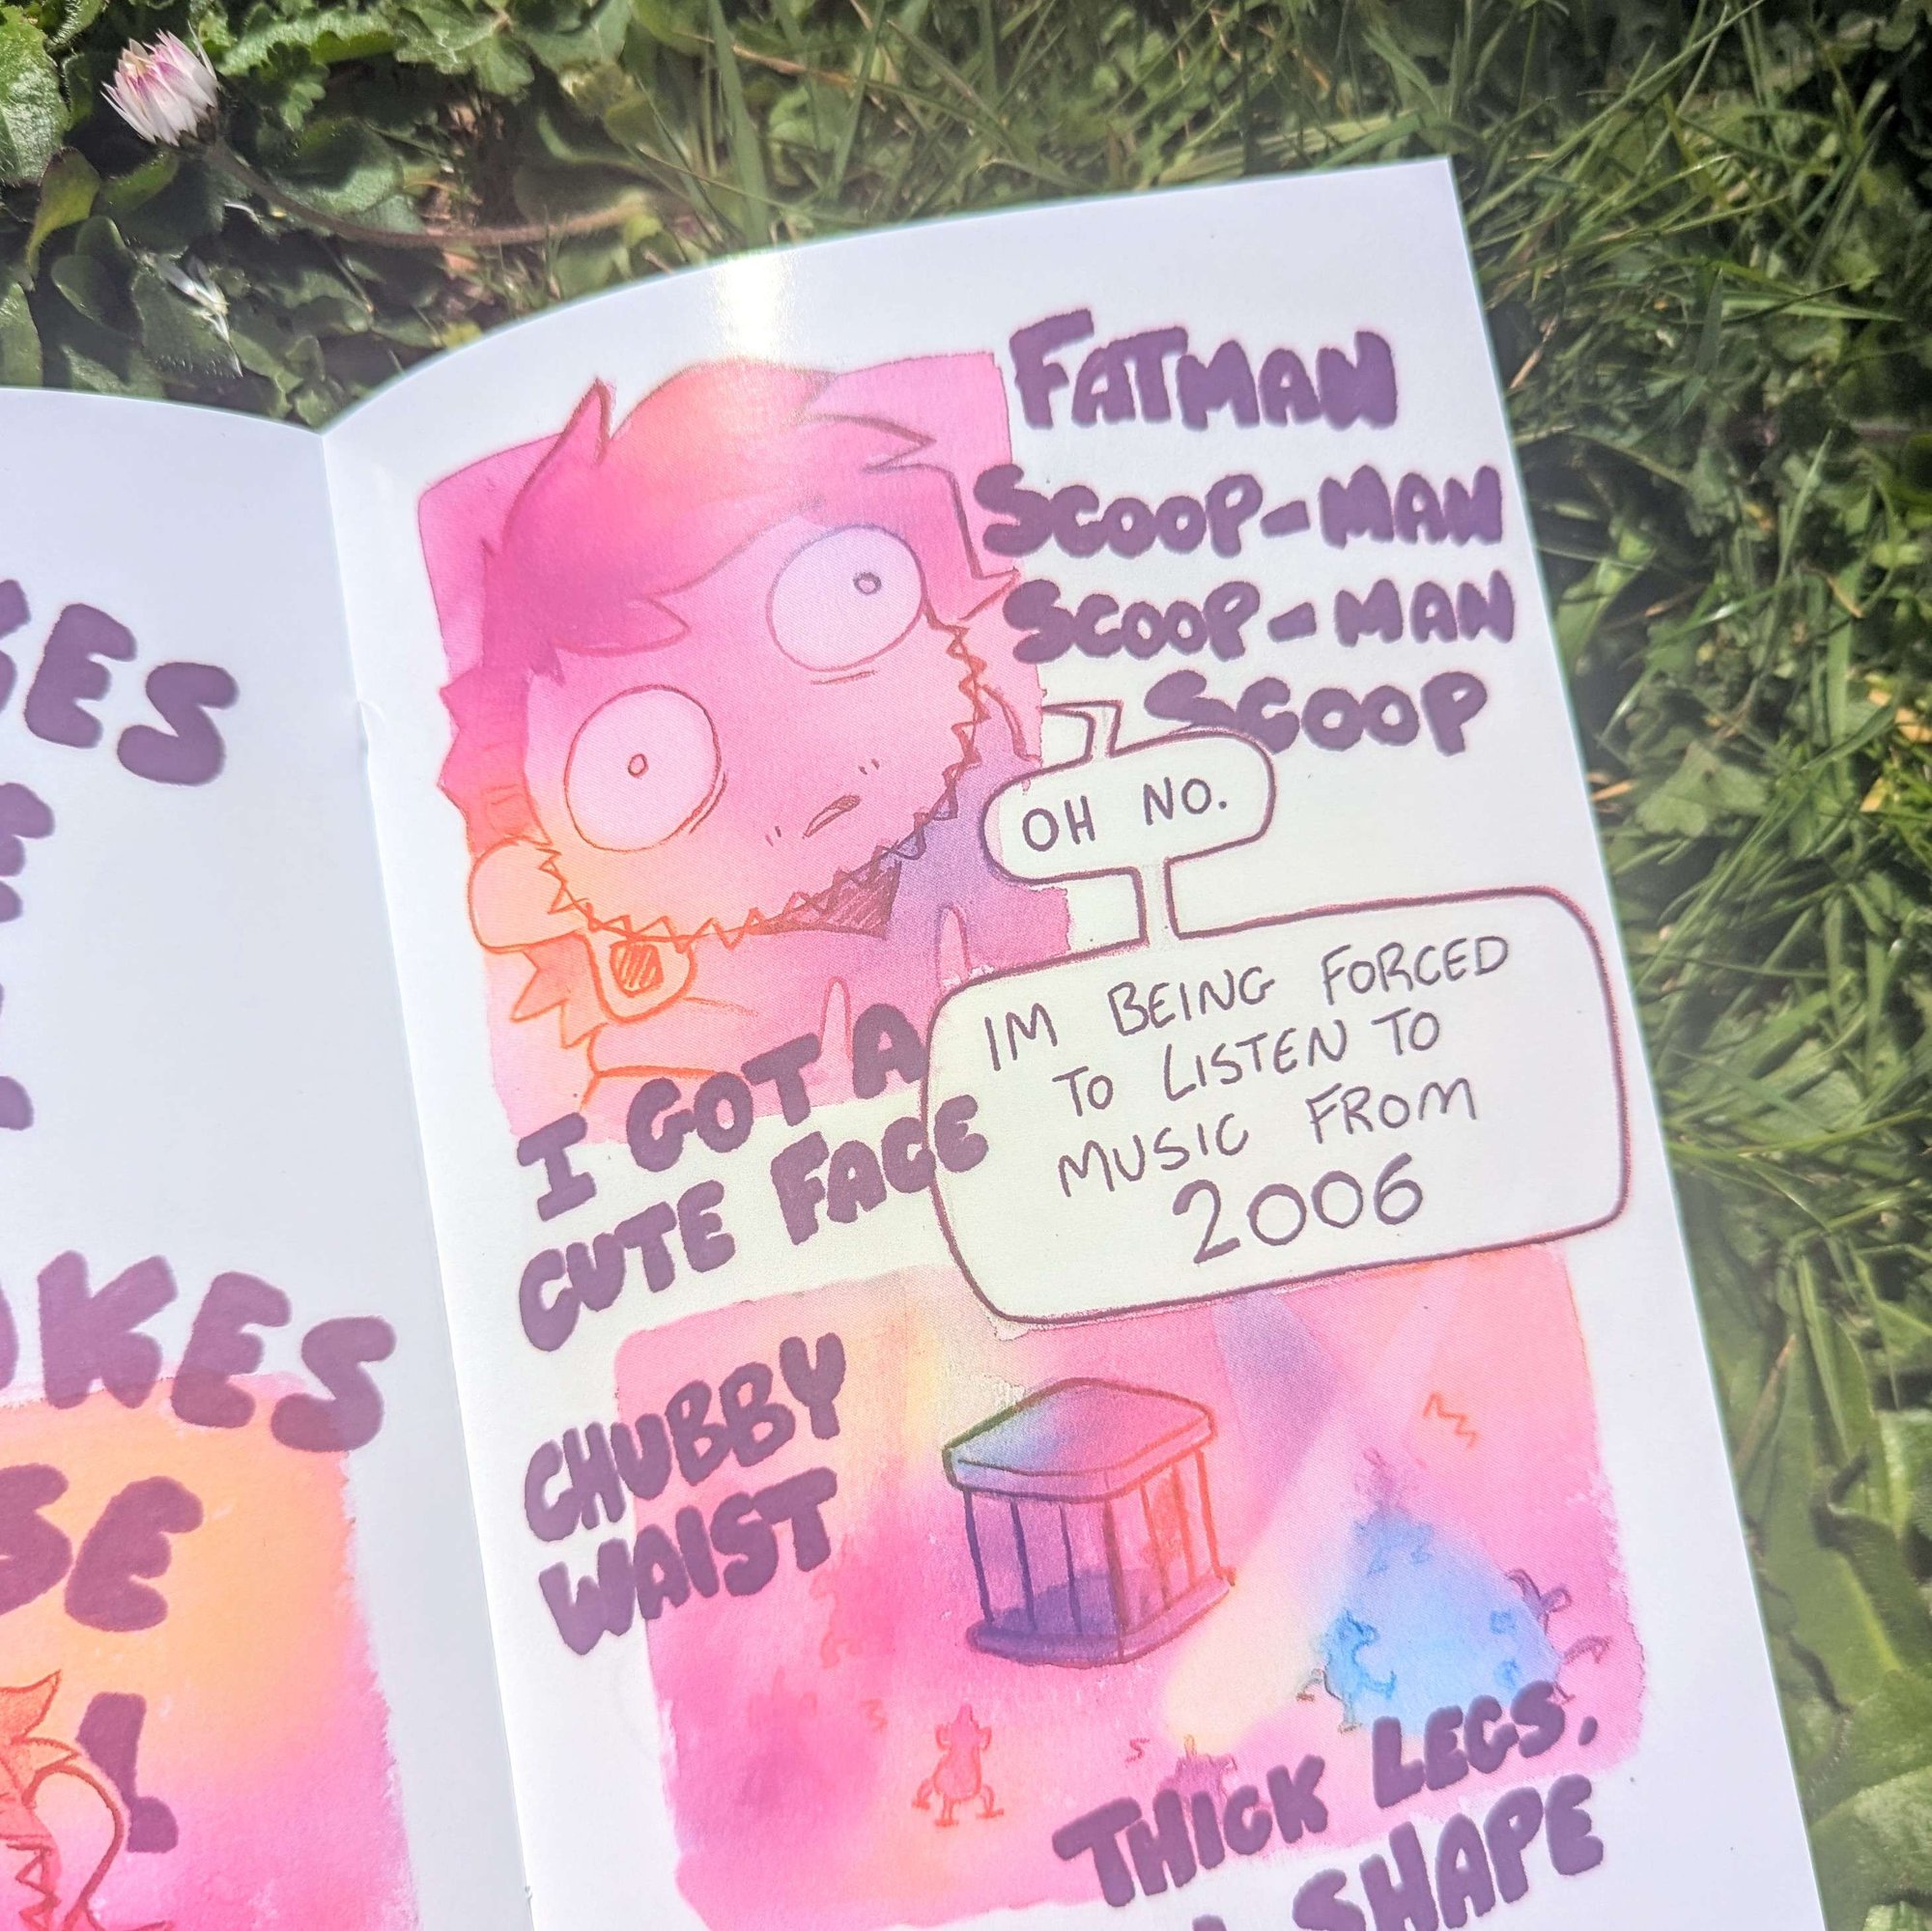 OKES
FATMAN
SCOOP-MAN
SCOOP-MAN
SCOOP
OH NO.
IM BEING FORCED
TO LISTEN TO
MUSIC FROM
2006
I GOT A
CUTE FACE
CHUBBY
WAIST
THICK LEGS,
SHAPE